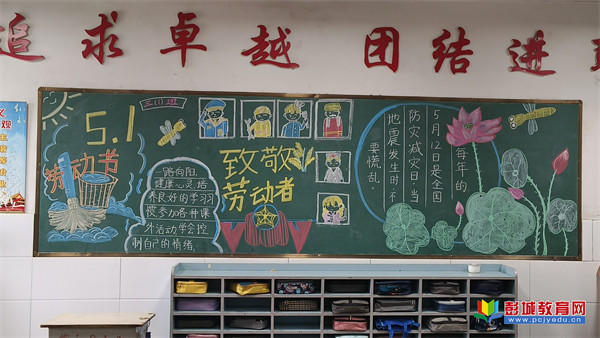 追求卓越 团结进
三(1)班
5.1
劳动节
一路向阳,
健康心灵,培
养良好的学习习
惯参加各种课
外活动学会控
制自己的情绪.
致敬
劳动者
每年的
5月12日是全国
防灾减灾日,当
地震发生时不
要慌乱.
彭城教育网
www.pcjyedu.cn